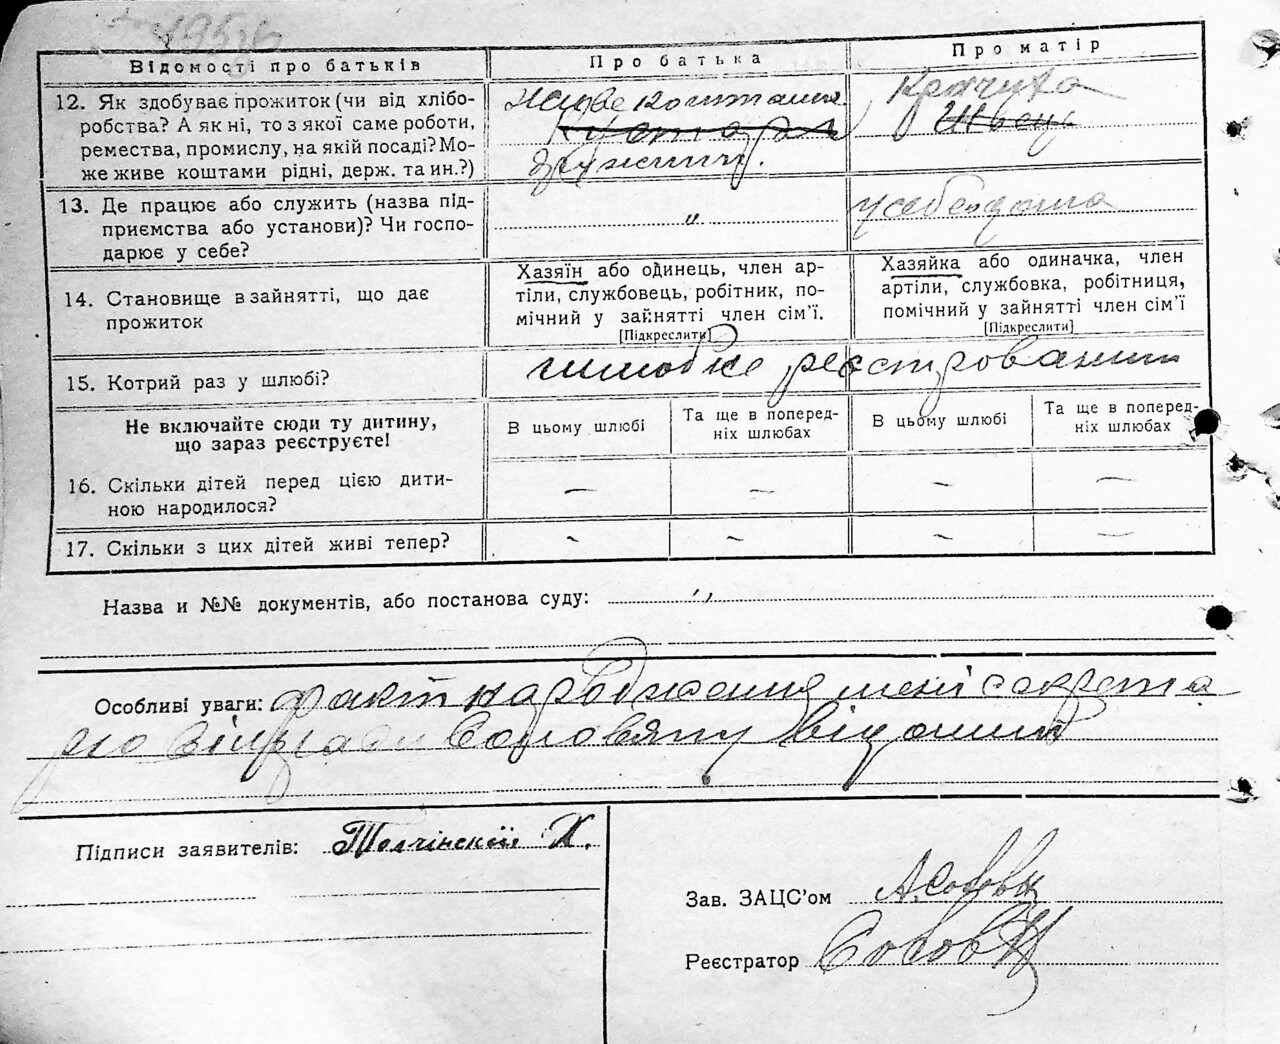 Відомості про батьків
Про батька
Про матір
12. Як здобуває прожиток (чи від хлібо-
робства? А як ні, то з якої саме роботи,
ремества, промислу, на якій посаді? Мо-
же живе коштами рідні, держ. та ин.?)
живе коштами
дружини.
Кравчиха
Швець
13. Де працює або служить (назва під-
приємства або установи)? Чи госпо-
дарює у себе?
"
у себе вдома
14. Становище в зайнятті, що дає
прожиток
Хазяїн або одинець, член ар-
тіли, службовець, робітник, по-
мічний у зайнятті член сім'ї.
[Підкреслити]
Хазяйка або одиначка, член
артіли, службовка, робітниця,
помічний у зайнятті член сім'ї
[Підкреслити]
15. Котрий раз у шлюбі?
шлюб не реєстрований
Не включайте сюди ту дитину,
що зараз реєструєте!
В цьому шлюбі
Та ще в поперед-
ніх шлюбах
В цьому шлюбі
Та ще в поперед-
ніх шлюбах
16. Скільки дітей перед цією дити-
ною народилося?
— — — —
17. Скільки з цих дітей живі тепер?
— — — —
Назва и №№ документів, або постанова суду: "
Особливі уваги: факт народження мені секрета
рю відомий
Підписи заявителів: Х.
Зав. ЗАЦС'ом
Реєстратор